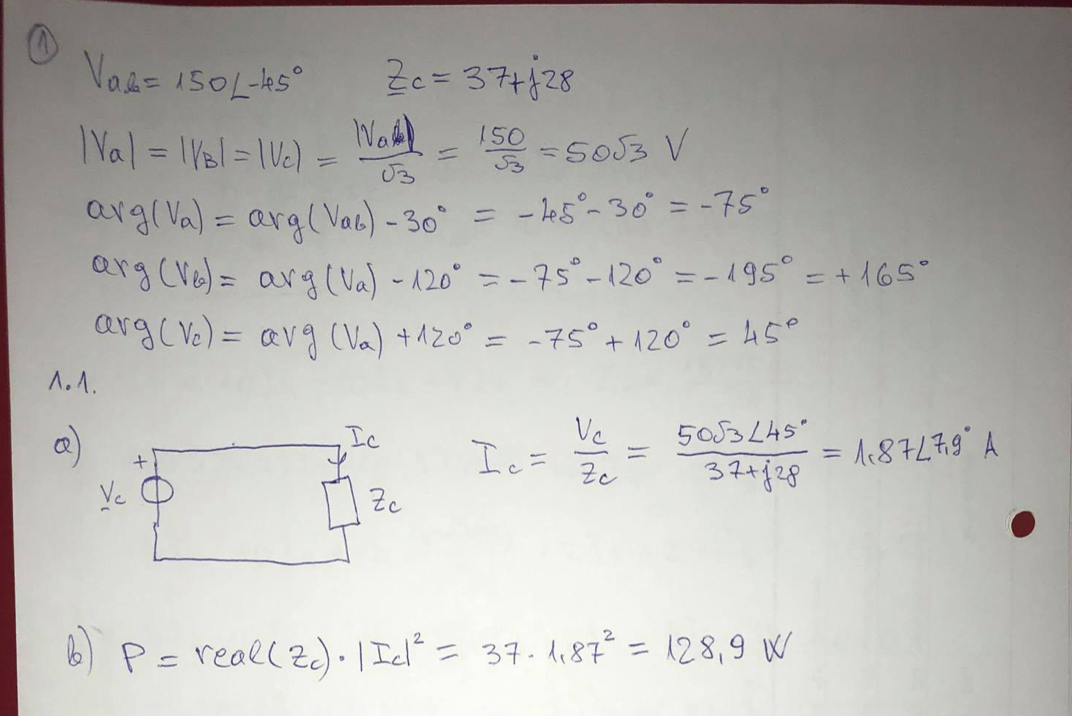 1
Vab = 150∠-45° Zc = 37+j28
|Va| = |VB| = |Vc| = |Vab|/√3 = 150/√3 = 50√3 V
arg(Va) = arg(Vab) - 30° = -45° - 30° = -75°
arg(Vb) = arg(Va) - 120° = -75° - 120° = -195° = +165°
arg(Vc) = arg(Va) + 120° = -75° + 120° = 45°
1.1.
a) + Vc Ic Zc Ic = Vc/Zc = 50√3∠45°/37+j28 = 1.87∠7,9° A
b) P = real(Zc) · |Ic|² = 37 · 1,87² = 128,9 W